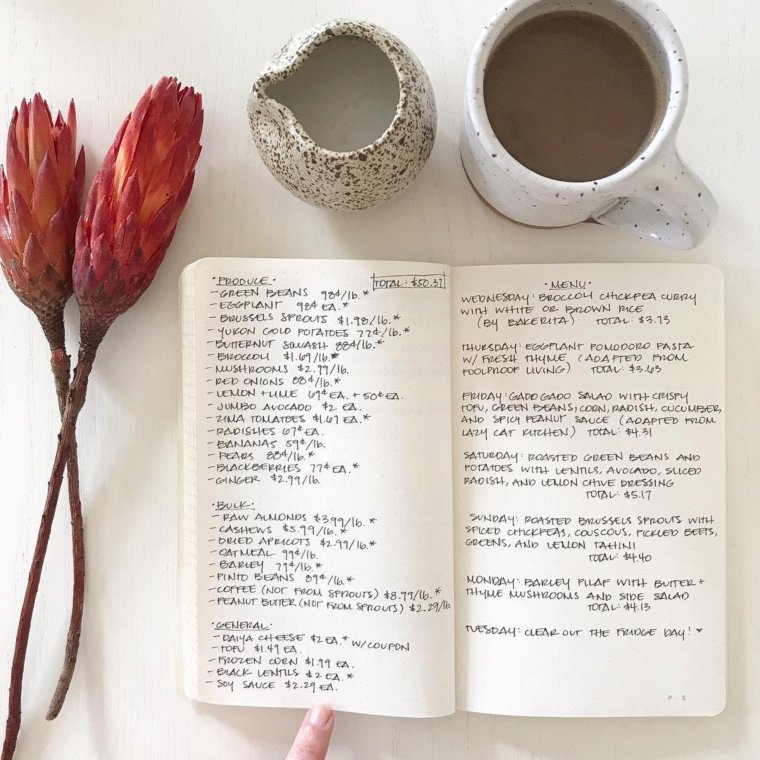 ·PRODUCE·
TOTAL: $50.37
- GREEN BEANS 98¢/lb.*
- EGGPLANT 98¢ EA.*
- BRUSSELS SPROUTS $1.98/lb.*
- YUKON GOLD POTATOES 77¢/lb.*
- BUTTERNUT SQUASH 88¢/lb.*
- BROCCOLI $1.69/lb.*
- MUSHROOMS $2.99/lb.
- RED ONIONS 88¢/lb.*
- LEMON + LIME 69¢ EA. + 50¢ EA.
- JUMBO AVOCADO $2 EA.
- ZIMA TOMATOES $1.67 EA.*
- RADISHES 67¢ EA.
- BANANAS 59¢/lb.
- PEARS 88¢/lb.*
- BLACKBERRIES 77¢ EA.*
- GINGER $2.99/lb.
·BULK·
- RAW ALMONDS $3.99/lb.*
- CASHEWS $5.99/lb.*
- DRIED APRICOTS $2.99/lb.*
- OATMEAL 99¢/lb.
- BARLEY 79¢/lb.*
- PINTO BEANS 89¢/lb.*
- COFFEE (NOT FROM SPROUTS) $8.99/lb.*
- PEANUT BUTTER (NOT FROM SPROUTS) $2.29/lb.
·GENERAL·
- DAIYA CHEESE $2 EA.* W/ COUPON
- TOFU $1.49 EA.
- FROZEN CORN $1.99 EA.
- BLACK LENTILS $2 EA.*
- SOY SAUCE $2.29 EA.
·MENU·
WEDNESDAY: BROCCOLI CHICKPEA CURRY
WITH WHITE OR BROWN RICE
(BY BAKERITA) TOTAL: $3.73
THURSDAY: EGGPLANT POMODORO PASTA
W/ FRESH THYME (ADAPTED FROM
FOOLPROOF LIVING) TOTAL: $3.63
FRIDAY: GADO GADO SALAD WITH CRISPY
TOFU, GREEN BEANS, CORN, RADISH, CUCUMBER,
AND SPICY PEANUT SAUCE (ADAPTED FROM
LAZY CAT KITCHEN) TOTAL: $4.31
SATURDAY: ROASTED GREEN BEANS AND
POTATOES WITH LENTILS, AVOCADO, SLICED
RADISH, AND LEMON CHIVE DRESSING
TOTAL: $5.17
SUNDAY: ROASTED BRUSSELS SPROUTS WITH
SPICED CHICKPEAS, COUSCOUS, PICKLED BEETS,
GREENS, AND LEMON TAHINI
TOTAL: $4.40
MONDAY: BARLEY PILAF WITH BUTTER +
THYME MUSHROOMS AND SIDE SALAD
TOTAL: $4.13
TUESDAY: CLEAR OUT THE FRIDGE DAY! ♥
P - 5